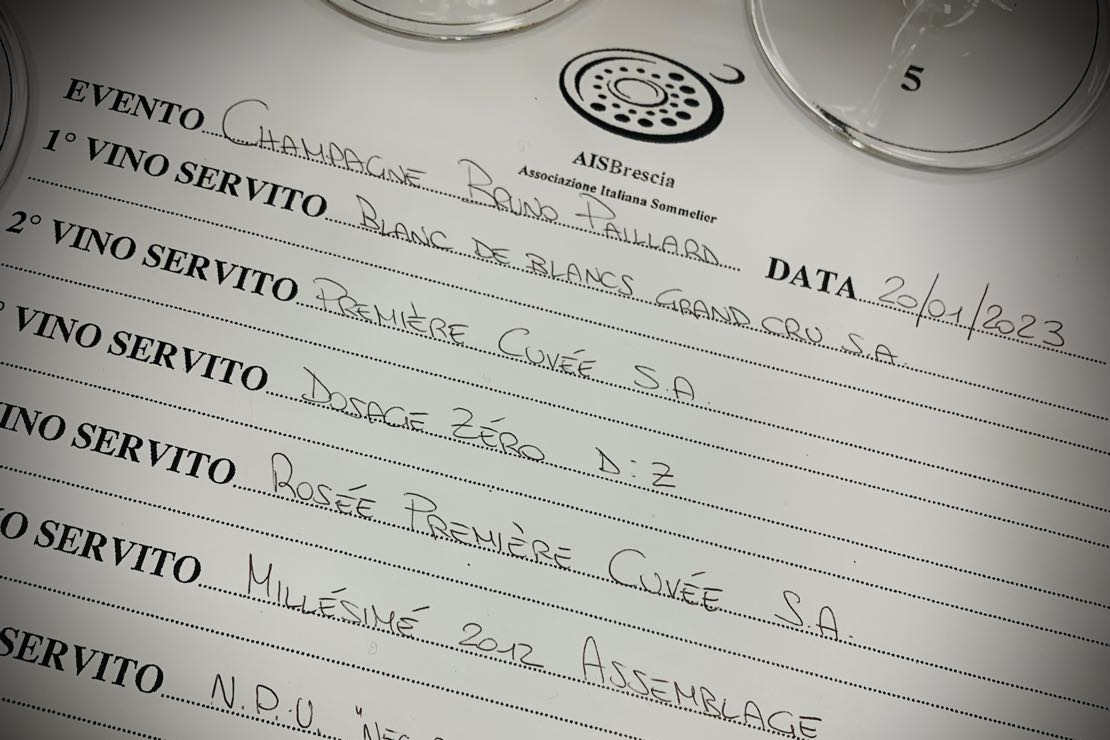 5
AISBrescia
Associazione Italiana Sommelier
EVENTO CHAMPAGNE BRUNO PAILLARD DATA 20/01/2023
1° VINO SERVITO BLANC DE BLANCS GRAND CRU S.A.
2° VINO SERVITO PREMIÈRE CUVÉE S.A.
° VINO SERVITO DOSAGE ZÉRO D:Z
VINO SERVITO ROSÉE PREMIÈRE CUVÉE S.A.
O SERVITO MILLÉSIMÉ 2012 ASSEMBLAGE
SERVITO N.P.U.